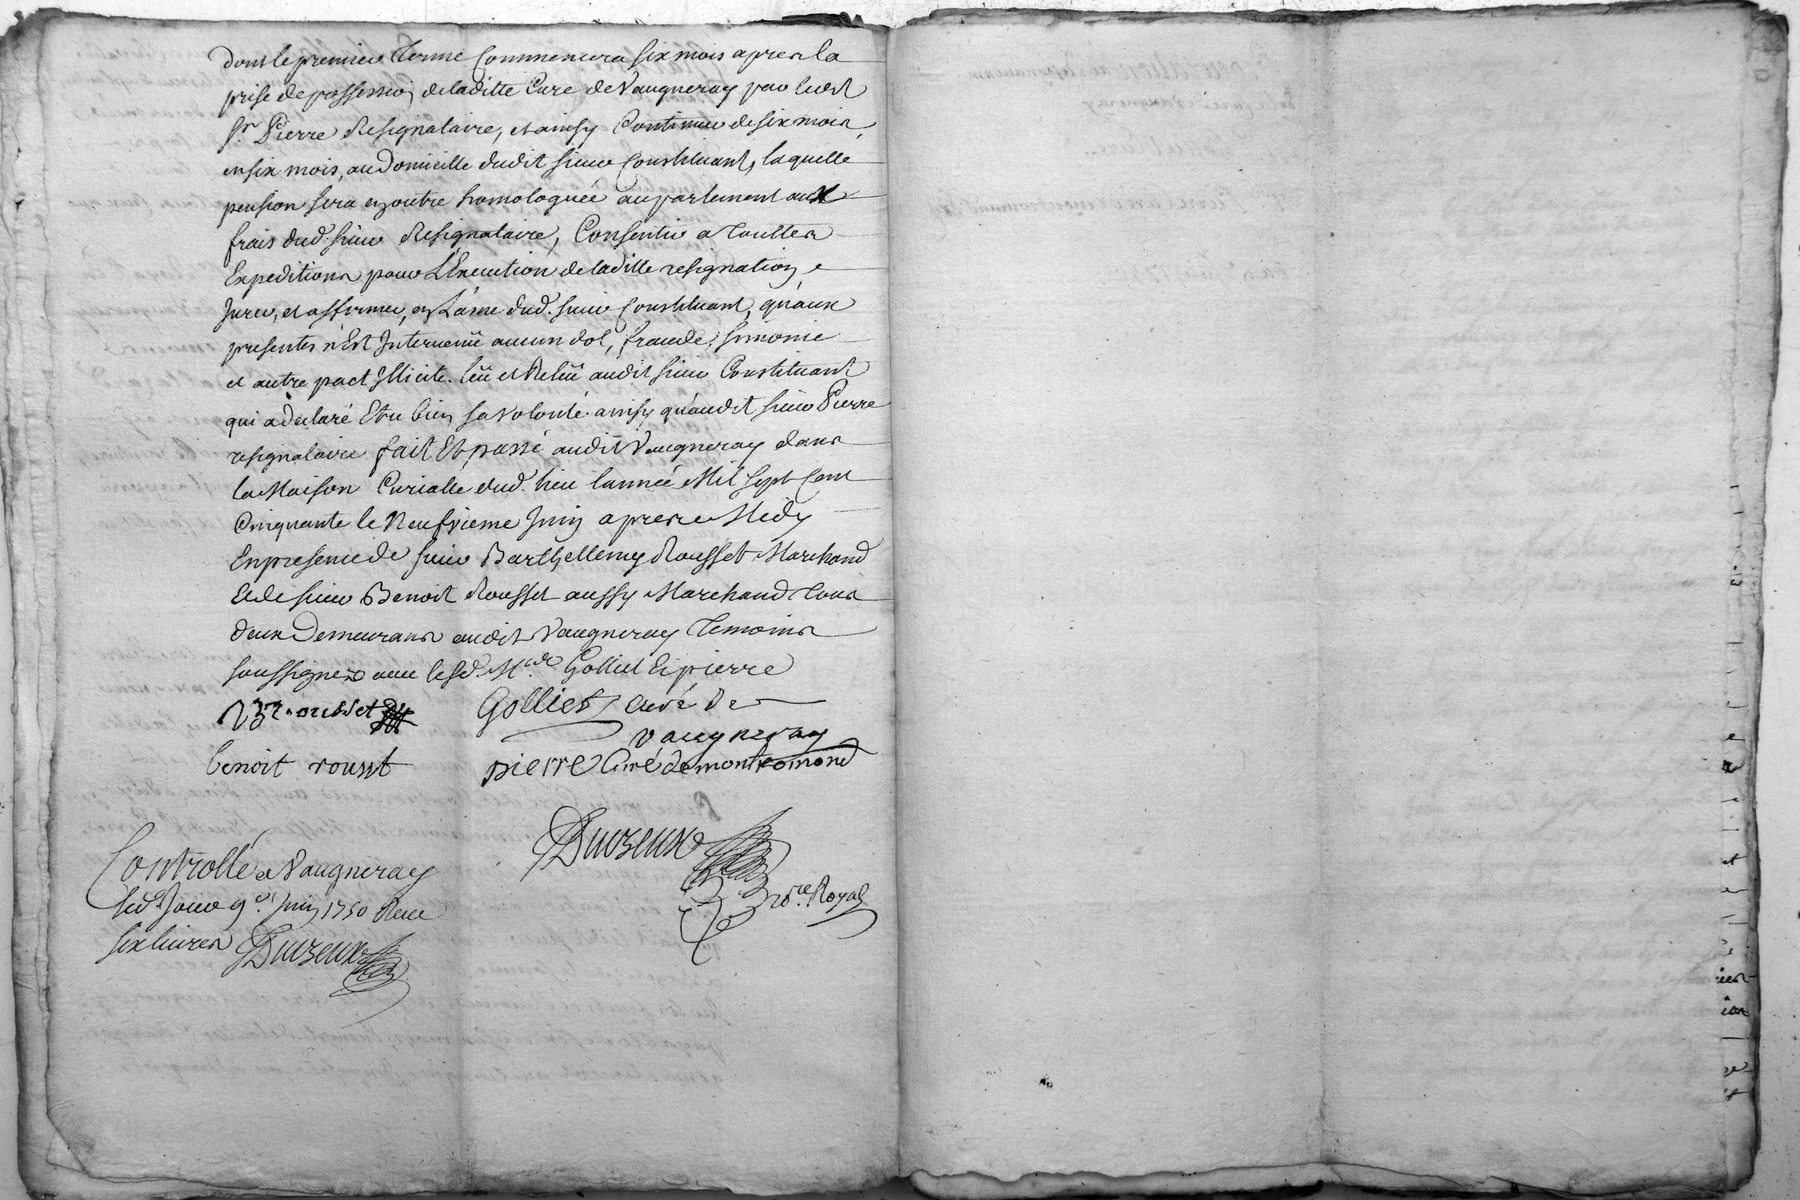 dont le premier terme Commencera six mois apres la
prise de possession de laditte Cure de Vaugneray par ledit
Sr. Pierre Resignataire, et ainsy Continuer de six mois
en six mois, au Domicille dudit sieur Constituant, laquelle
pension sera en outre homologuée au parlement aux
frais dud. sieur Resignataire, Consentir a touttes
Expeditions pour L'Execution de laditte resignation, e
Jurer, et affirmer, en L'ame dud. sieur Constituant, qu'aux
presentes n'Est Intervenüe aucun dol, fraude, simonie
et autre pact Illicite. leü et Releü audit sieur Constituant
qui a declaré Etre bien sa volonté ainsy qu'audit sieur Pierre
resignataire fait Et passé audit Vaugneray dans
la Maison Curialle dud. lieu lannée Mil sept Cent
Cinquante le Neufvieme Juin apres Midy
En presence de sieur Barthellemy Rousset Marchand
Et de sieur Benoit Rousset aussy Marchand tous
deux Demeurans audit Vaugneray temoins
soussignez avec lesd. Mre. Golliet Et pierre
Bmy rousset
Golliet curé de
vaugneray
benoit rousst
pierre Curé de montromond
Duvzeux
Nore. Royal
Controllé a Vaugneray
led. Jour 9e. Juin 1750 Reçu
six livres Duvzeux